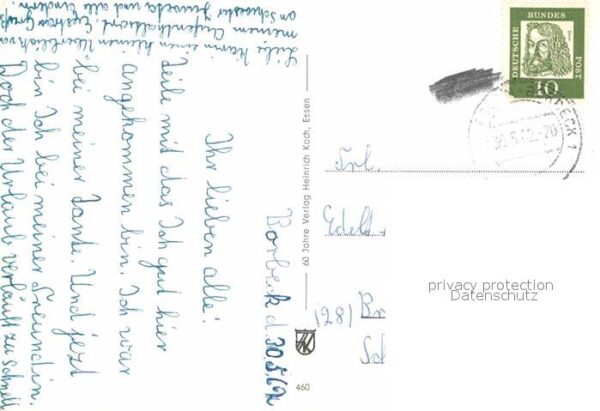 Borbeck d. 30.5.62
Ihr lieben alle!
Teile mit das Ich gut hier
angekommen bin. Ich war
bei meiner Tante. Und jezt
bin Ich bei meiner Freundin.
Doch der Urlaub verläuft zu schnell
Liebe Karin einen kleinen Überblick von
meinem Aufenthaltsort
an Schwester und alle Kindern
60 Jahre Verlag Heinrich Koch, Essen
460
DEUTSCHE BUNDES POST
10
ECK 1
30.5.62-20
Frl.
Edel
(281) Br
Sch
privacy protection
Datenschutz